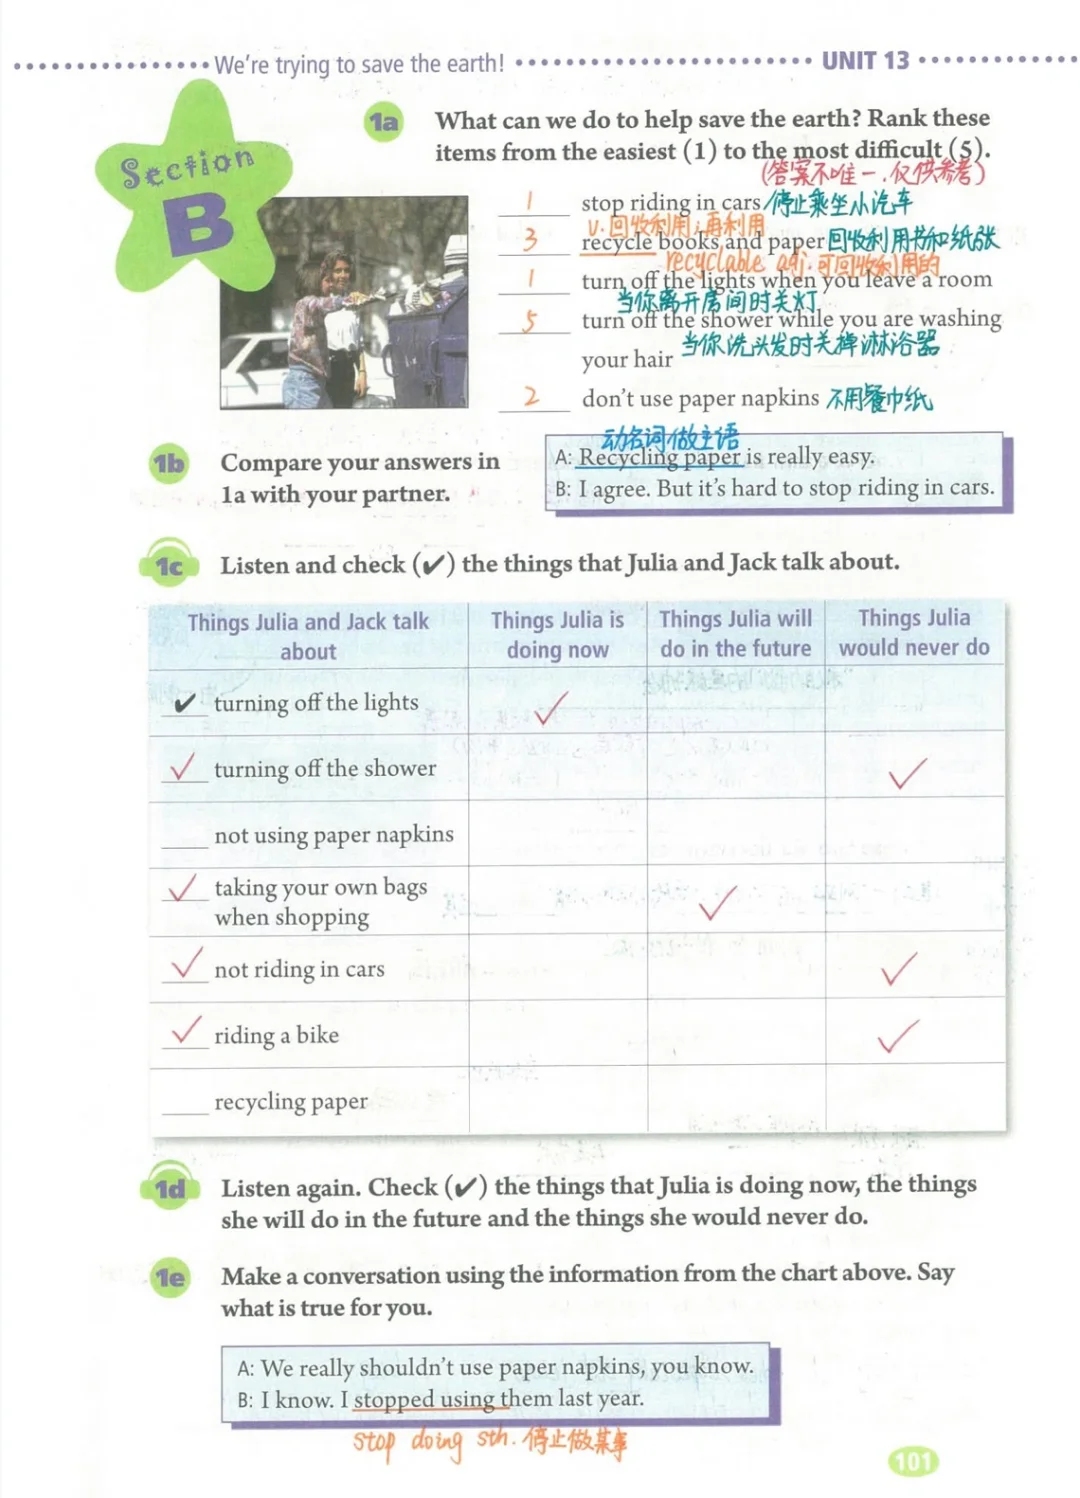 We're trying to save the earth! UNIT 13
Section
B
1a What can we do to help save the earth? Rank these
items from the easiest (1) to the most difficult (5).
(答案不唯一,仅供参考)
1 stop riding in cars 停止乘坐小汽车
v. 回收利用;再利用
3 recycle books and paper 回收利用书和纸张
recyclable adj. 可回收利用的
1 turn off the lights when you leave a room
当你离开房间时关灯
5 turn off the shower while you are washing
your hair 当你洗头发时关掉淋浴器
2 don't use paper napkins 不用餐巾纸
1b Compare your answers in
1a with your partner.
动名词做主语
A: Recycling paper is really easy.
B: I agree. But it's hard to stop riding in cars.
1c Listen and check (✔) the things that Julia and Jack talk about.
Things Julia and Jack talk about Things Julia is doing now Things Julia will do in the future Things Julia would never do
✔ turning off the lights ✓
✓ turning off the shower ✓
not using paper napkins
✓ taking your own bags
when shopping ✓
✓ not riding in cars ✓
✓ riding a bike ✓
recycling paper
1d Listen again. Check (✔) the things that Julia is doing now, the things
she will do in the future and the things she would never do.
1e Make a conversation using the information from the chart above. Say
what is true for you.
A: We really shouldn't use paper napkins, you know.
B: I know. I stopped using them last year.
stop doing sth. 停止做某事
101